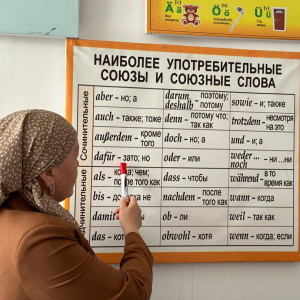 Ä ä Ö ö Ü ü
НАИБОЛЕЕ УПОТРЕБИТЕЛЬНЫЕ
СОЮЗЫ И СОЮЗНЫЕ СЛОВА
Сочинительные
aber - но; а
darum deshalb - поэтому, потому
sowie - и; также
auch - также; тоже
denn - потому что; так как
trotzdem - несмотря на это
außerdem - кроме того
doch - но; а
und - и; а
dafür - зато; но
oder - или
weder ... noch - ни ... ни
als - когда; чем;
dass - чтобы
während - в то время как
bis - до
nachdem - после того как
wann - когда
damit
ob - ли
weil - так как
das - кото
obwohl - хотя
wenn - когда; если